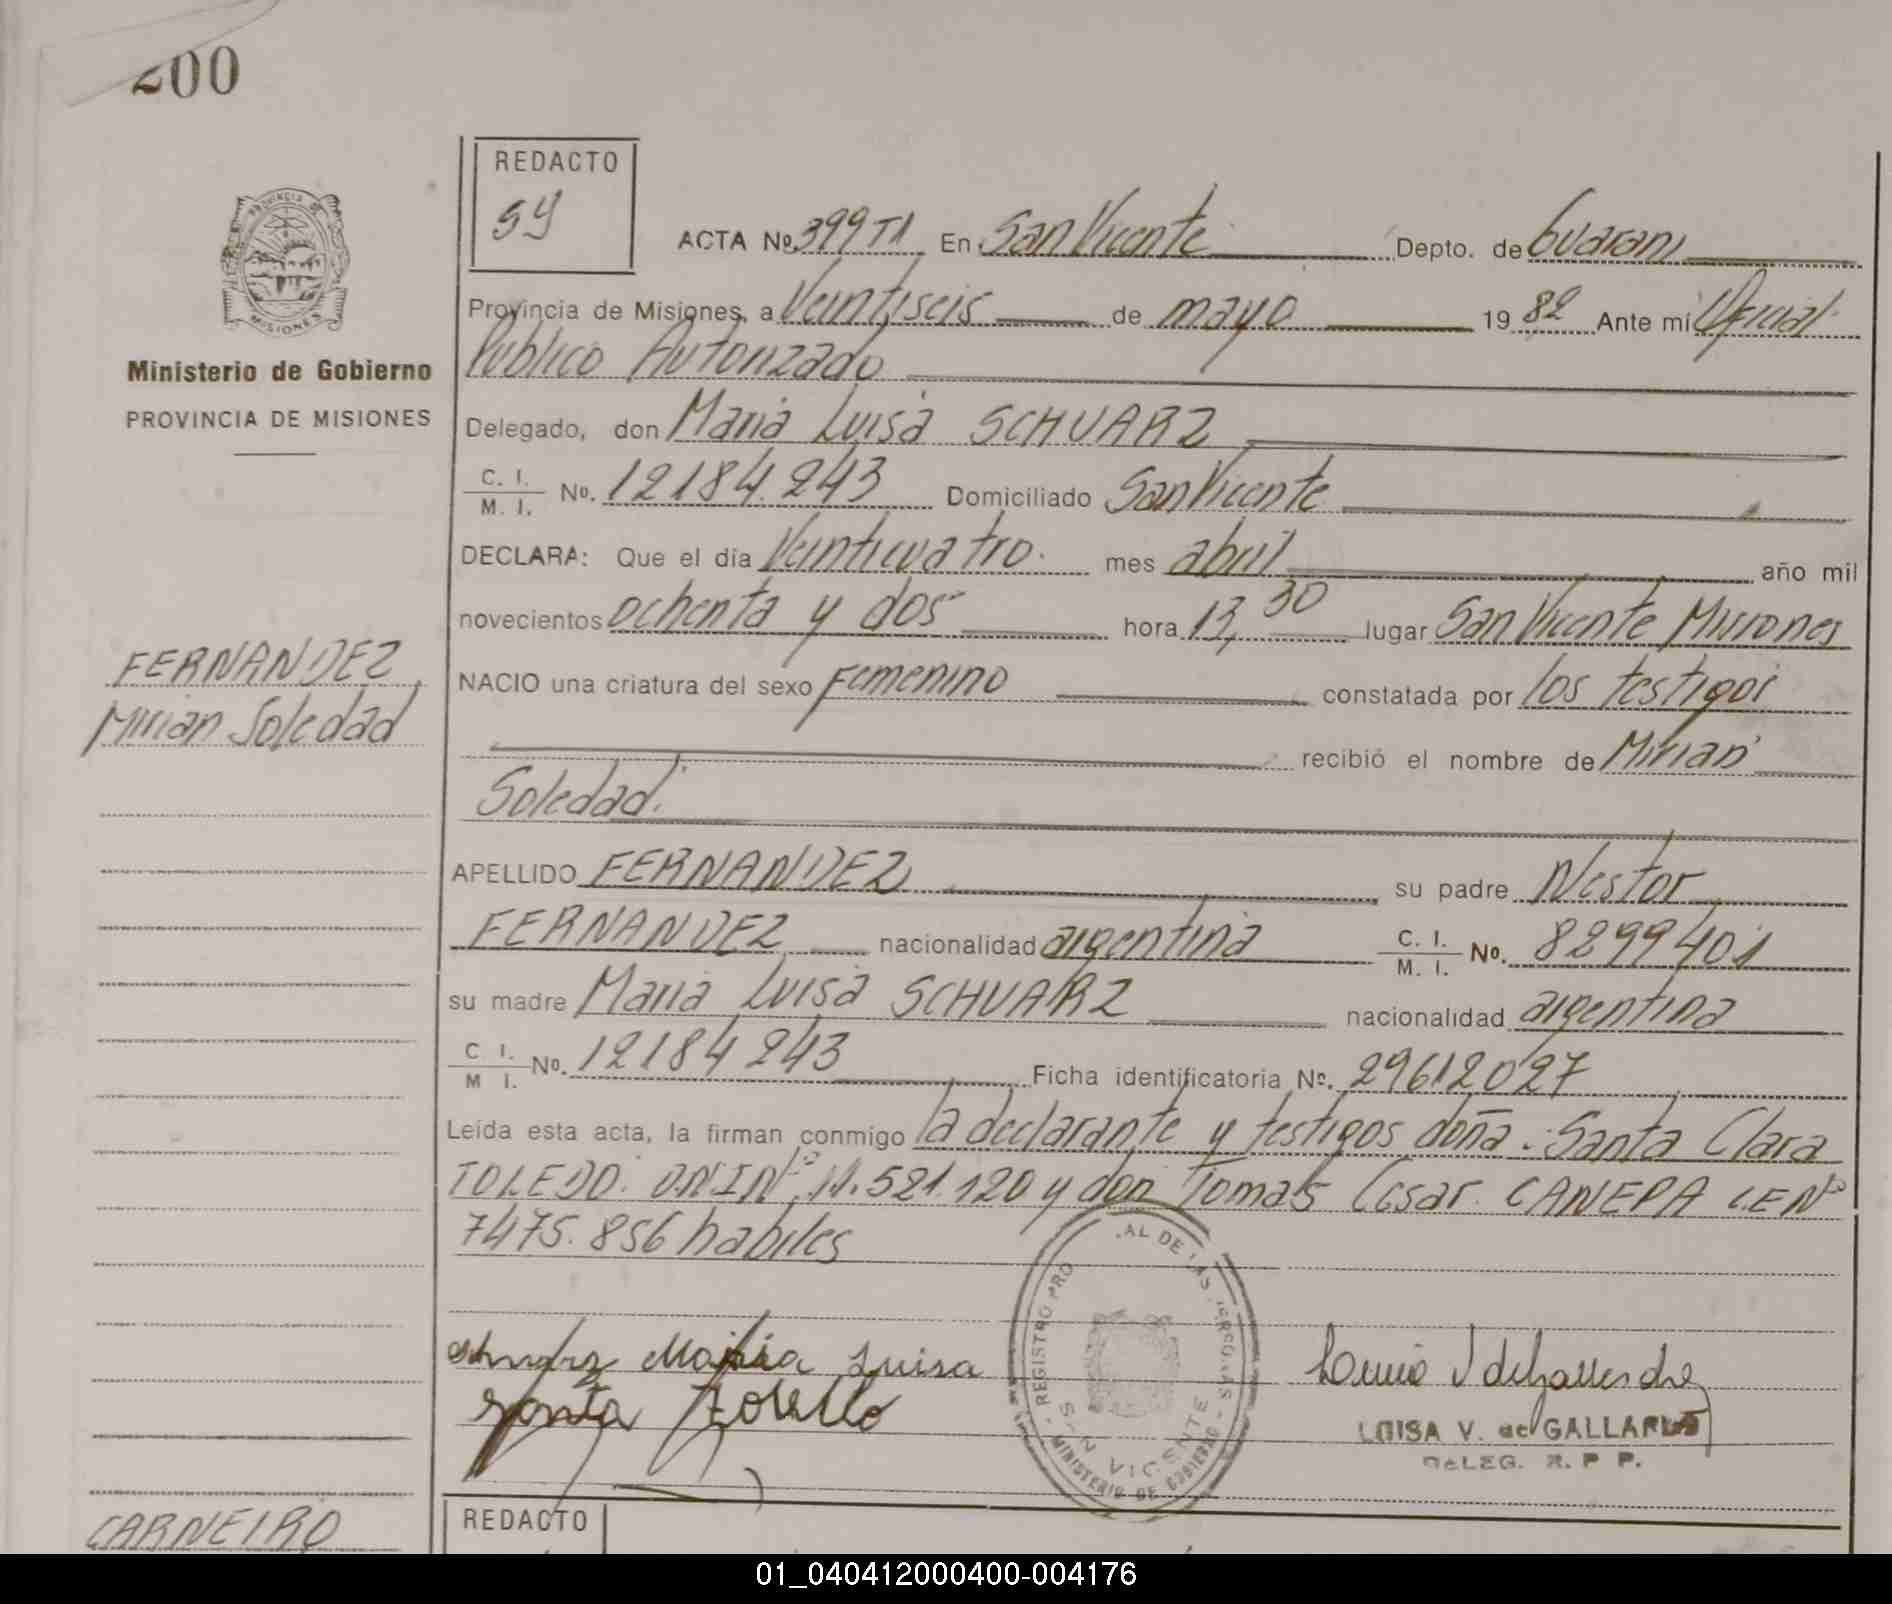 200
REDACTO
59
ACTA No. 399 T1 En San Vicente Depto. de Guarani
Provincia de Misiones, a Veintiseis de mayo 1982 Ante mi Oficial
Publico Autorizado
Ministerio de Gobierno
PROVINCIA DE MISIONES
MISIONES
Delegado, don Maria Luisa SCHVARZ
C. I.
M. I. No. 12184.243 Domiciliado San Vicente
DECLARA: Que el día Veinticuatro mes abril año mil
novecientos ochenta y dos hora 13,30 lugar San Vicente Misiones
FERNANDEZ
Mirian Soledad
NACIO una criatura del sexo Femenino constatada por los testigos
recibió el nombre de Mirian
Soledad.
APELLIDO FERNANDEZ su padre Nestor
FERNANDEZ nacionalidad argentina C. I. M. I. No. 8299401
su madre Maria Luisa SCHVARZ nacionalidad argentina
C I. M I. No. 12184243 Ficha identificatoria No. 29612027
Leída esta acta, la firman conmigo la declarante y testigos doña: Santa Clara
TOLEDO. DNI Nº 11.521.120 y don Tomas Cesar CANEPA L.E Nº
7475.856 habiles
REGISTRO PRO AL DE LAS PERSONAS
SAN VICENTE
MINISTERIO DE GOBIERNO
Maria Luisa
Santa
LUISA V. de GALLARDO
DELEG. R. P P.
REDACTO
CARNEIRO
01_040412000400-004176